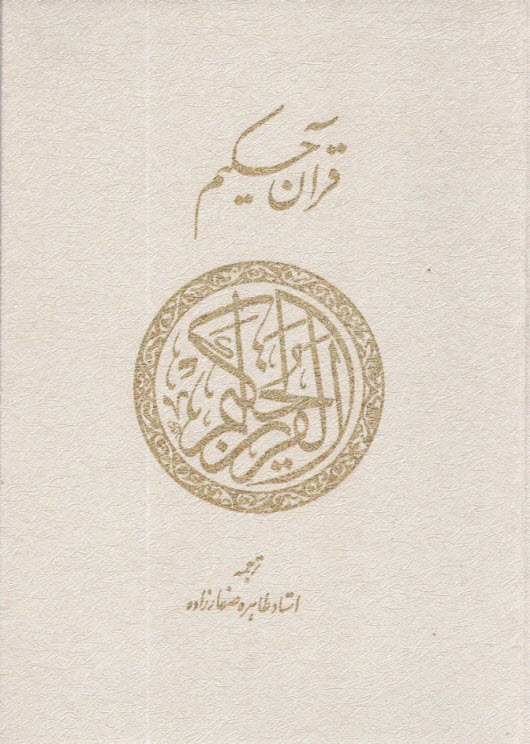 قرآن حکیم
القرآن الحکیم
ترجمه
استاد طاهره صفارزاده